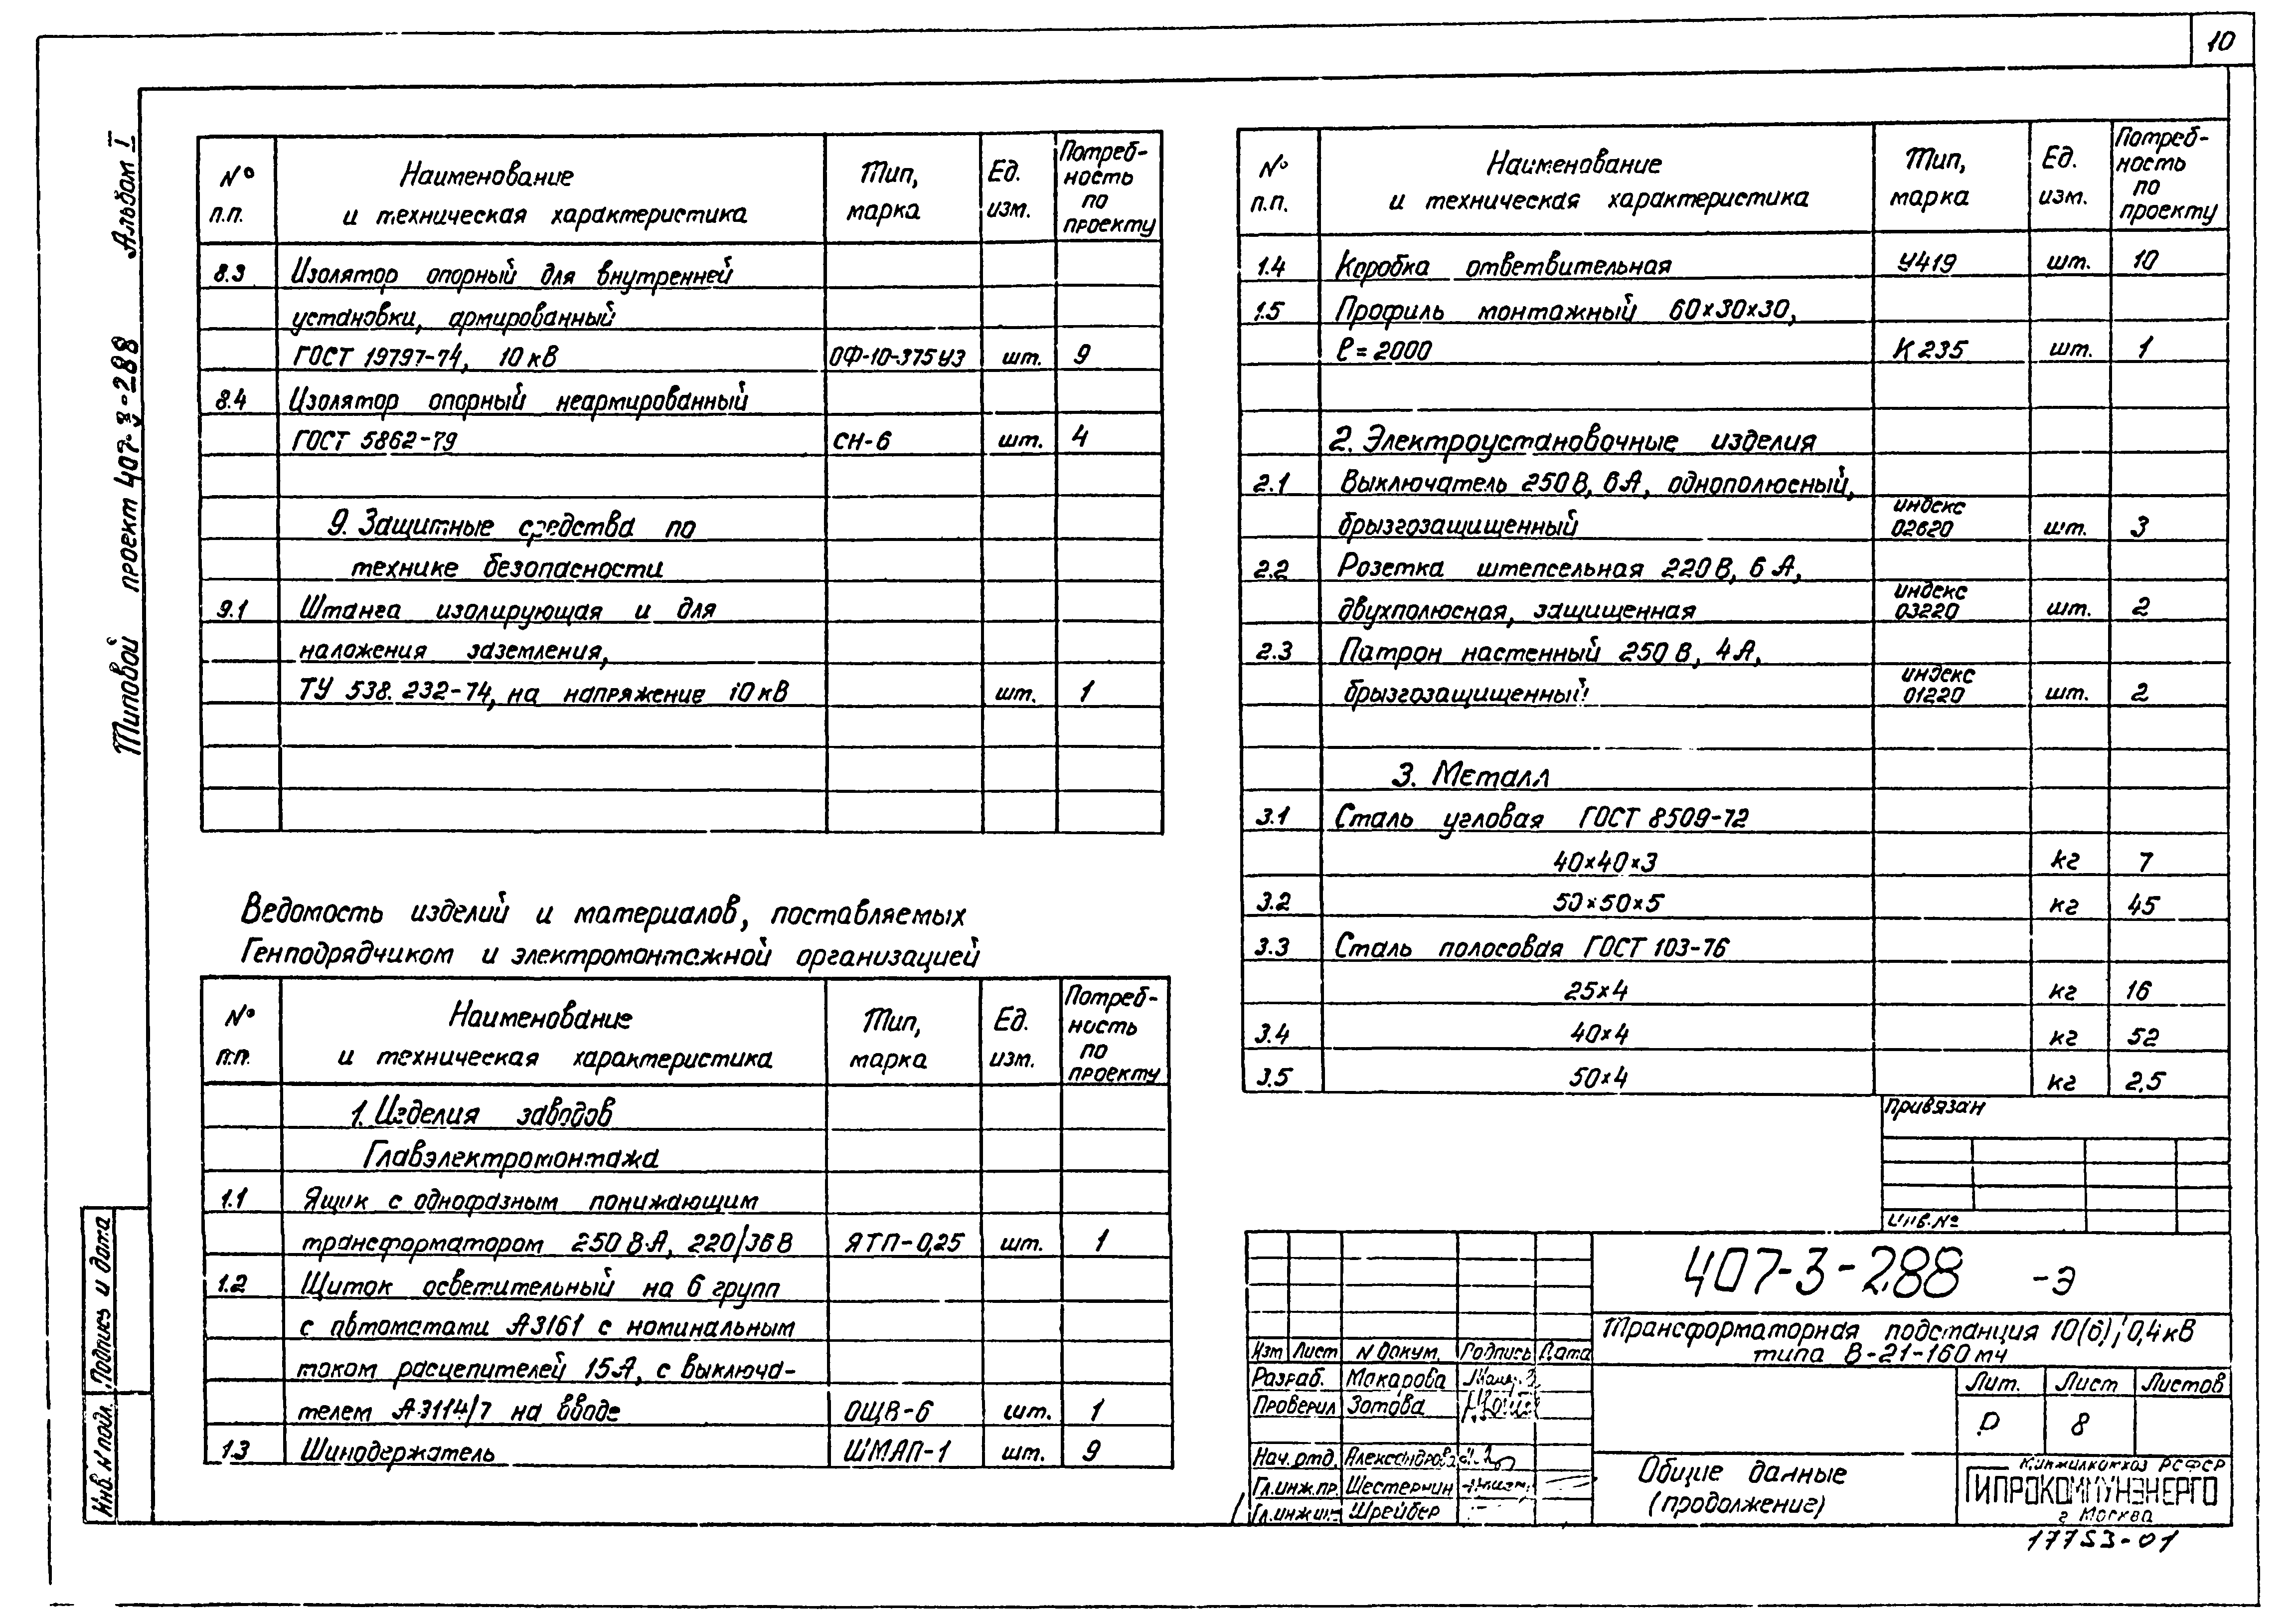 10
Типовой проект 407-3-288 Альбом I
№ п.п. Наименование и техническая характеристика Тип, марка Ед. изм. Потреб-ность по проекту
8.3 Изолятор опорный для внутренней
установки, армированный
ГОСТ 19797-74, 10 кВ ОФ-10-375У3 шт. 9
8.4 Изолятор опорный неармированный
ГОСТ 5862-79 СН-6 шт. 4
9. Защитные средства по
технике безопасности
9.1 Штанга изолирующая и для
наложения заземления,
ТУ 538.232-74, на напряжение 10 кВ шт. 1
Ведомость изделий и материалов, поставляемых
Генподрядчиком и электромонтажной организацией
№ п.п. Наименование и техническая характеристика Тип, марка Ед. изм. Потреб-ность по проекту
1. Изделия заводов
Главэлектромонтажа
1.1 Ящик с однофазным понижающим
трансформатором 250 В·А, 220/36 В ЯТП-0,25 шт. 1
1.2 Щиток осветительный на 6 групп
с автоматами А3161 с номинальным
током расцепителей 15А, с выключа-
телем А3114/7 на вводе ОЩВ-6 шт. 1
1.3 Шинодержатель ШМАП-1 шт. 9
№ п.п. Наименование и техническая характеристика Тип, марка Ед. изм. Потреб-ность по проекту
1.4 Коробка ответвительная У419 шт. 10
1.5 Профиль монтажный 60×30×30,
ℓ=2000 К235 шт. 1
2. Электроустановочные изделия
2.1 Выключатель 250 В, 6 А, однополюсный,
брызгозащищенный индекс 02620 шт. 3
2.2 Розетка штепсельная 220 В, 6 А,
двухполюсная, защищенная индекс 03220 шт. 2
2.3 Патрон настенный 250 В, 4 А,
брызгозащищенный индекс 01220 шт. 2
3. Металл
3.1 Сталь угловая ГОСТ 8509-72
40×40×3 кг 7
3.2 50×50×5 кг 45
3.3 Сталь полосовая ГОСТ 103-76
25×4 кг 16
3.4 40×4 кг 52
3.5 50×4 кг 2,5
Привязан
Инв. №
407-3-288 -Э
Трансформаторная подстанция 10(6)/0,4 кВ
типа В-21-160 м4
Изм Лист N докум. Подпись Дата
Разраб. Макарова
Проверил Зотова
Нач. отд. Александрова
Гл.инж.пр. Шестернин
Гл.инж.ин-т Шрейбер
Лит. Лист Листов
Р 8
Общие данные
(продолжение)
Минжилкомхоз РСФСР
ГИПРОКОММУНЭНЕРГО
г. Москва
17753-01
Инв. N подл. Подпись и дата